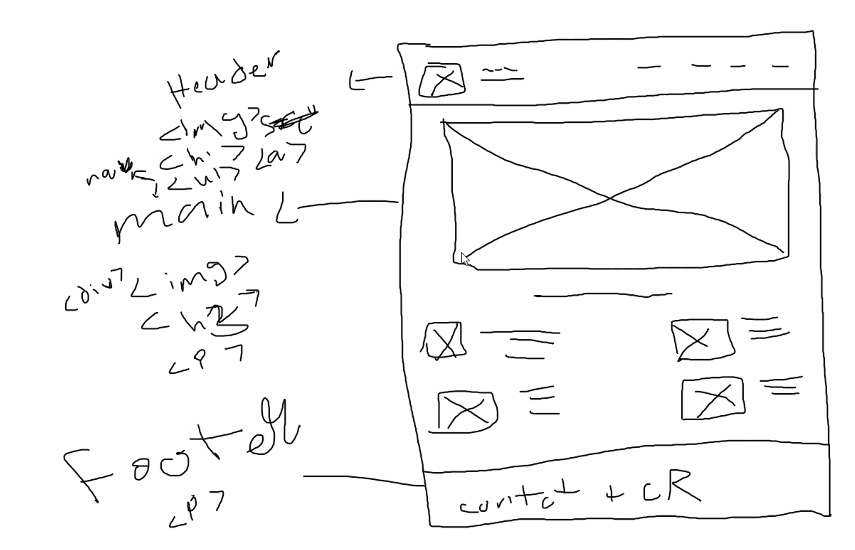 Header
<img>
<h1> <a>
nav <ul>
main
<div> <img>
<h3>
<p>
Footer
<p>
contact + CR